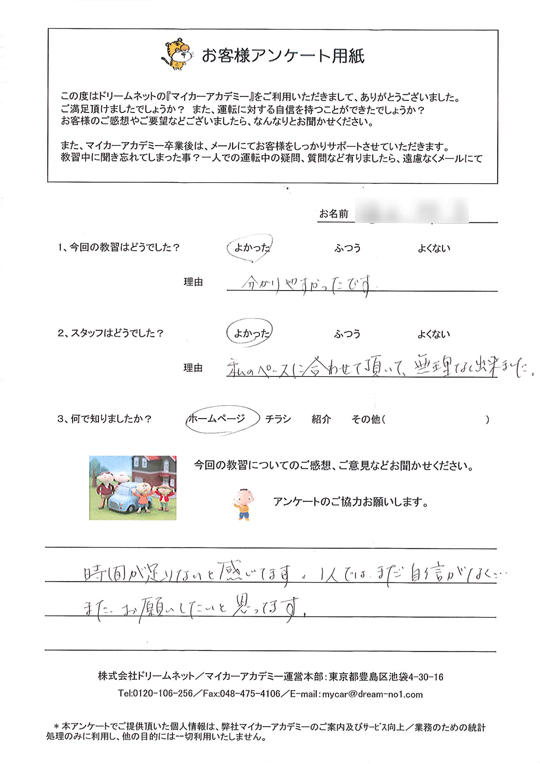 お客様アンケート用紙
この度はドリームネットの『マイカーアカデミー』をご利用いただきまして、ありがとうございました。
ご満足頂けましたでしょうか？ また、運転に対する自信を持つことができたでしょうか？
お客様のご感想やご要望などございましたら、なんなりとお聞かせください。
また、マイカーアカデミー卒業後は、メールにてお客様をしっかりサポートさせていただきます。
教習中に聞き忘れてしまった事？一人での運転中の疑問、質問など有りましたら、遠慮なくメールにて
お名前
1、今回の教習はどうでした？ よかった ふつう よくない
理由 分かりやすかったです
2、スタッフはどうでした？ よかった ふつう よくない
理由 私のペースに合わせて頂いて、無理なく出来ました。
3、何で知りましたか？ ホームページ チラシ 紹介 その他( )
今回の教習についてのご感想、ご意見などお聞かせください。
アンケートのご協力お願いします。
時間が足りないと感じてます。1人では、まだ自信がなく…
また、お願いしたいと思ってます。
株式会社ドリームネット／マイカーアカデミー運営本部：東京都豊島区池袋4-30-16
Tel:0120-106-256／Fax:048-475-4106／E-mail:mycar@dream-no1.com
＊本アンケートでご提供頂いた個人情報は、弊社マイカーアカデミーのご案内及びサービス向上／業務のための統計
処理のみに利用し、他の目的には一切利用いたしません。